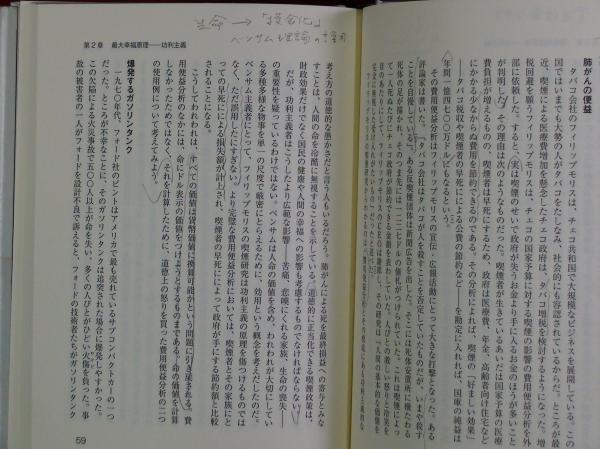 肺がんの便益
タバコ会社のフィリップモリスは、チェコ共和国で大規模なビジネスを展開している。この
国ではいまでも大勢の人がタバコをたしなみ、社会的にも容認されているからだ。ところが最
近、喫煙による医療費増加を懸念したチェコ政府は、タバコ増税を検討するようになった。増
税回避を願うフィリップモリスは、チェコの国家予算に対する喫煙の影響の費用便益分析を外
部に依頼した。すると、実は喫煙のせいで政府が失うお金より手に入るお金のほうが多いこと
が判明した。その理由は次のようなものだった。喫煙者が生きているあいだは国家予算の医療
費負担が増えるものの、喫煙者は早死にするため、政府は医療費、年金、高齢者向け住宅など
にかかる少なからぬ費用を節約できるのである。その分析によれば、喫煙の「好ましい効果」
──タバコ税収や喫煙者の早死にによる公費の節約など──を勘定に入れれば、国庫の純益は
年間一億四七〇〇万ドルにもなるという。
その費用便益分析は、フィリップモリスの宣伝・広報活動にとって大きな打撃となった。ある
評論家は書いた。「タバコ会社はタバコが人を殺すことを否定していたものだが、いまや殺す
ことを自慢している」。ある反喫煙団体は新聞広告を出した。そこには死体安置所に横たわる
死体の足が描かれ、そのつま先には一二二七ドルの値札がつけられていた。これは喫煙によっ
第2章 最大幸福原理──功利主義
生命→「換金化」
考えの道徳的な愚かさだと言う人もいるだろう。肺がんによる死を最終損益への寄与とみな
すことは、人間の命を冷酷に無視することを示している。道徳的に正当化できる喫煙政策は、
財政効果だけでなく国民の健康や人間の幸福への影響も考慮するものでなければならない。
だが、功利主義者はこうしたより広範な影響──苦痛、悲嘆にくれる家族、生命の喪失──
の重要性を疑っているわけではない。ベンサムは人命の価値を含め、われわれが大切にしてい
る多種多様な物事を単一の尺度で厳密にとらえるために、効用という概念を考えだしたのだ。
ベンサム主義者にとって、フィリップモリスの喫煙研究は功利主義の原理を傷つけるものでは
なく、ただ誤用したにすぎない。より完璧な費用便益分析においては、喫煙者とその家族にと
っての早死にによる損失額が計上され、喫煙者の早死にによって政府が手にする節約額と比較
されることになる。
こうしてわれわれは、すべての価値は貨幣価値に換算可能かという問題に引き戻される。費
用便益分析のなかには、命にドル表示の価値をつけようとするものまである。命の価値を計算
しなかったためではなく、それを計算したために、道徳上の怒りを買った費用便益分析の二つ
の使用例について考えてみよう。
爆発するガソリンタンク
一九七〇年代、フォード社のピントはアメリカで最も売れているサブコンパクトカーの一つ
だった。ところが不幸なことに、そのガソリンタンクは追突された場合に爆発しやすかった。
この欠陥による火災事故で五〇〇人以上が命を失い、多くの人びとがひどい火傷を負った。事
故の被害者の一人がフォードを設計不良で訴えると、フォードの技術者たちがガソリンタンク
59